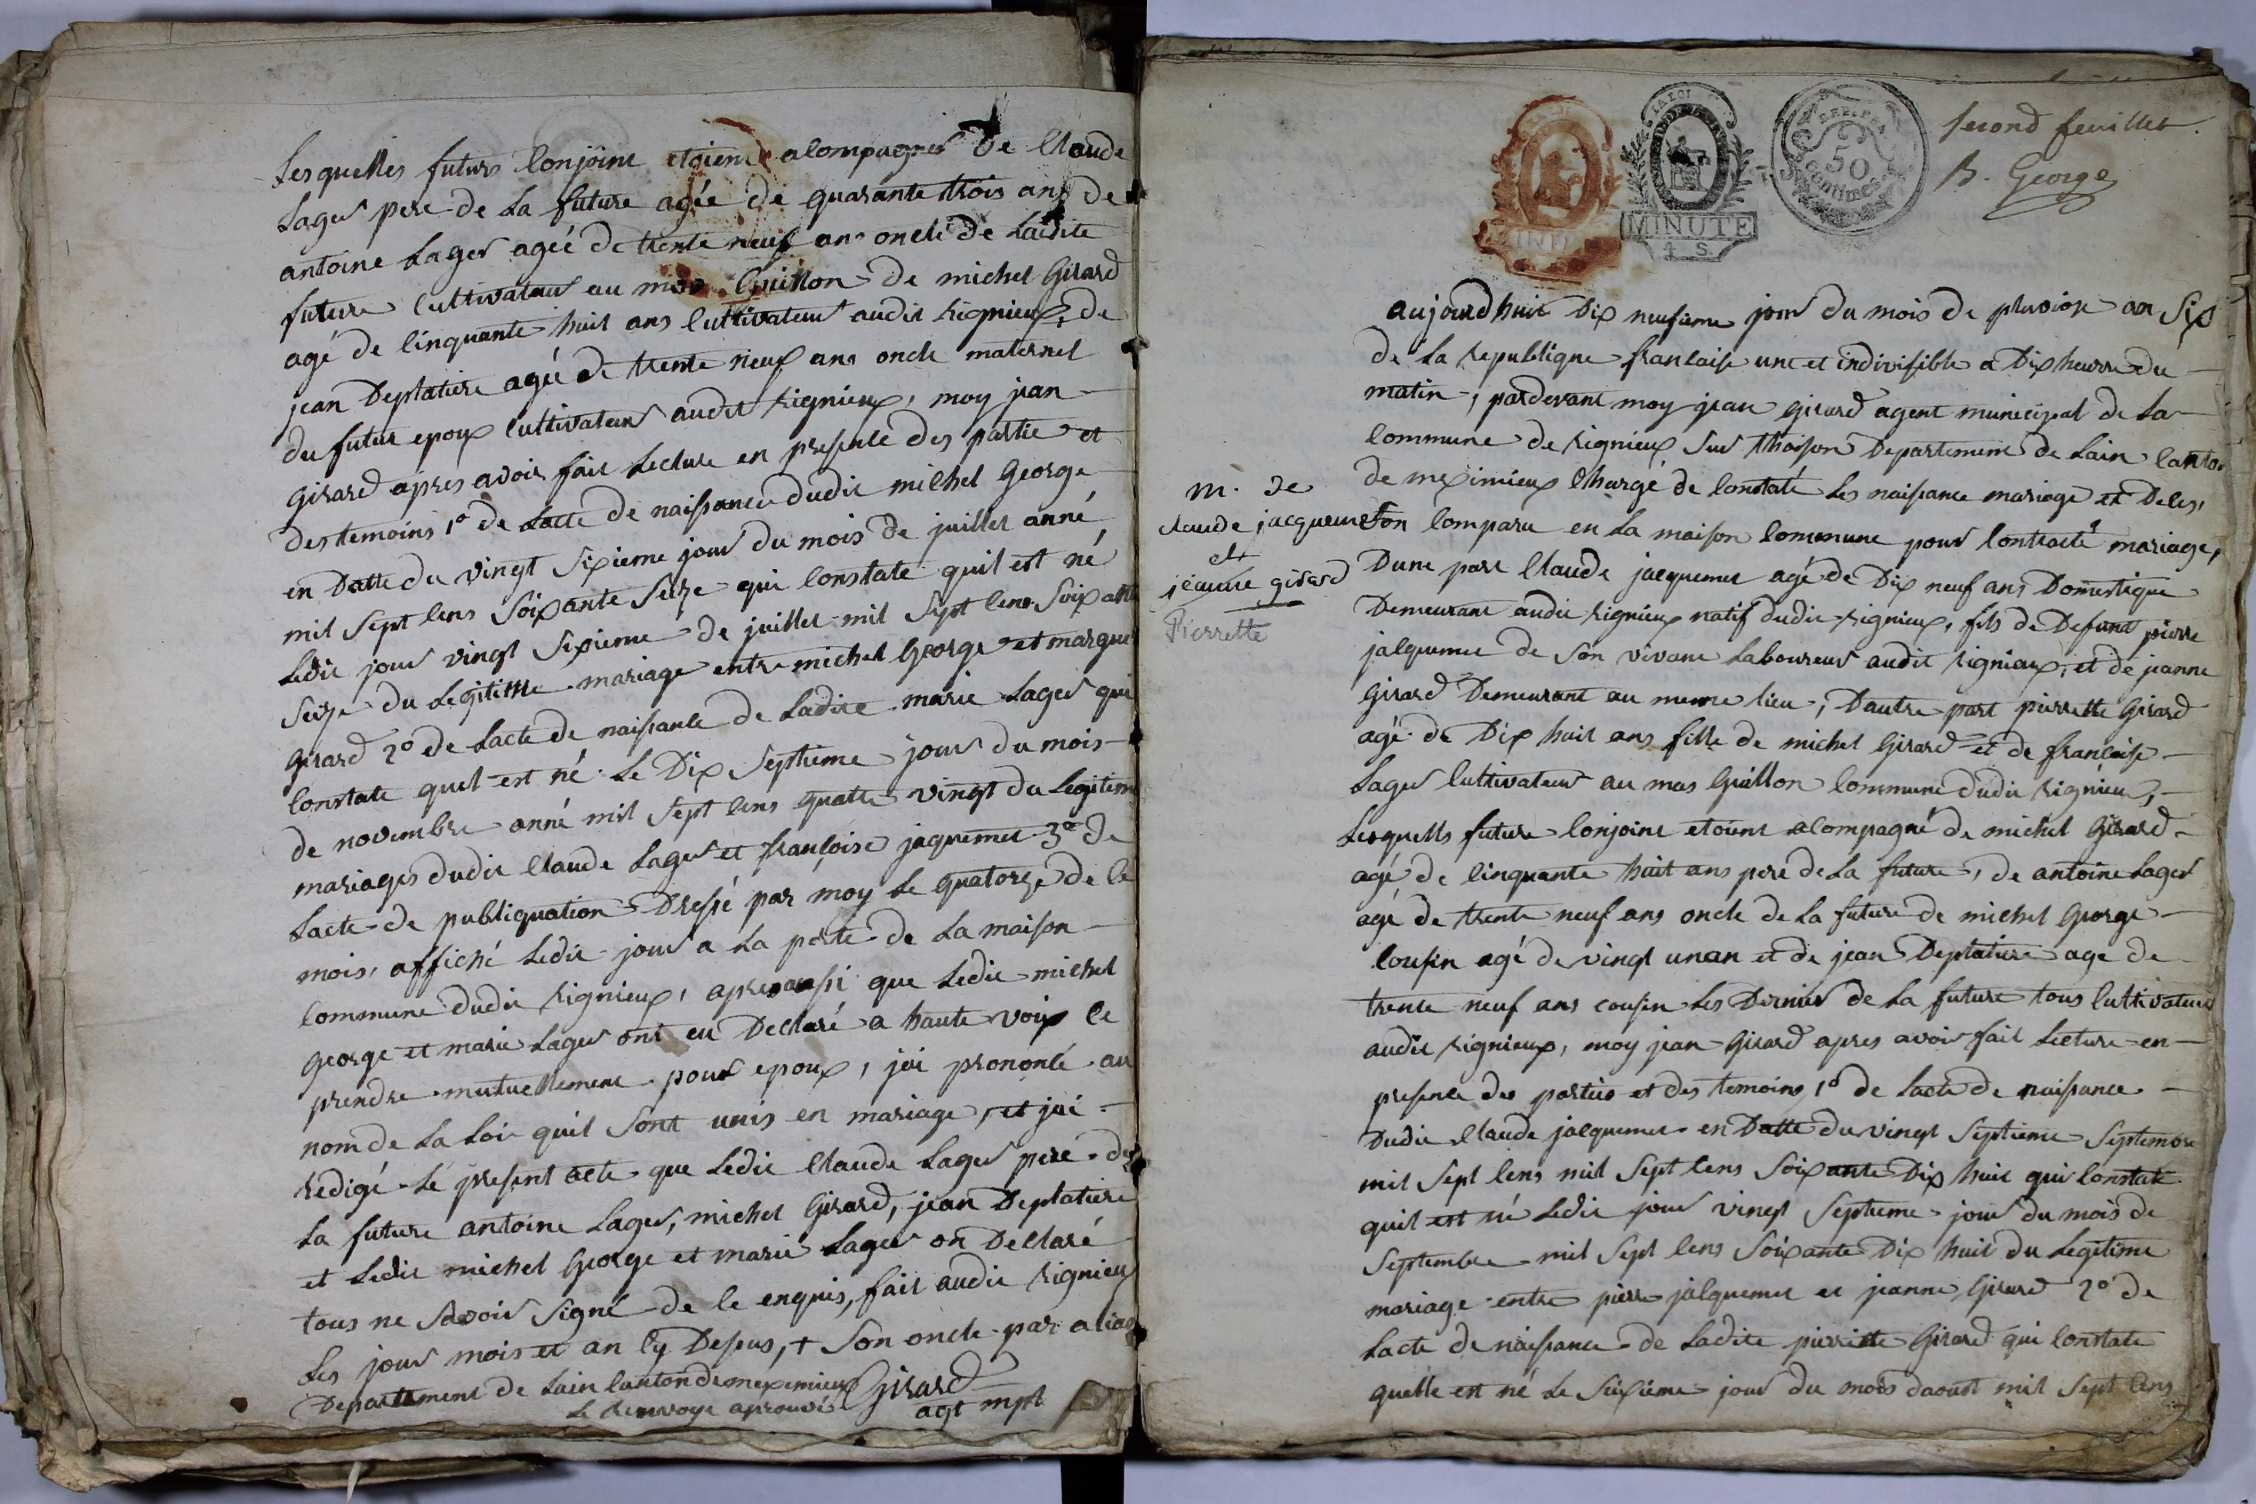 Les quelles futurs Conjoint etoient acompagnés de Claude
Lager pere de La future agée de quarante trois ans de
antoine Lager agée de trente neuf ans oncle de Ladite
future Cultivateur au mas Guillon de michel Girard
agé de Cinquante huit ans Cultivateur audit Rignieux, de
jean Deplatiere agée de trente neuf ans oncle maternel
du futur epoux Cultivateur audit Rignieux, moy jean
Girard apres avoir fait Lecture en presence des partie et
des temoins 1º de Lacte de naissance dudit michel George
en Datte du vingt Sixieme jour du mois de juillet anné
mil Sept Cens Soixante Seize qui Constate quil est né
Ledit jour vingt Sixieme de juillet mil Sept Cens Soixante
Seize du Legitime mariage entre michel George et margue
Girard 2º de Lacte de naissance de Ladite marie Lager qui
Constate quel est né Le Dix Septieme jour du mois
de novembre anné mil Sept Cens quatre vingt du Legitime
mariages dudit Claude Lager et françoise jaquemet 3º de
Lacte de publiquation Dressé par moy Le quatorze de Ce
mois, affiché Ledit jour a La porte de La maison
Commune dudit Rignieux, apres aussi que Ledit michel
George et marie Lager ont eu Declaré a haute voix Ce
prendre mutuellement pour epoux, jai prononcé au
nom de La Loi quil Sont unis en mariage, et jai
redigé Le present acte que Ledit Claude Lager peré de
La future antoine Lager, michel Girard, jean Deplatiere
et Ledit michel George et marie Lager on Declaré
tous ne Savoir Signé de Ce enquis, fait audit Rignieux
Les jour mois et an Cy Dessus, + Son oncle par aliag
Departement de Lain Canton de meximieux Girard
Le Renvoye aprouvé agt mpl
LA LOI
MINUTE
1 S.
50
Centimes
Second feuillet.
B. George
aujourdhuit Dix neufieme jour du mois de pluviose an Six
de La republique francaise une et indivisible a Dix heurre du
matin, pardevant moy jean girard agent municipal de La
Commune de Rignieux Sur Thoison Departement de Lain Canton
de meximieux Chargé de Constaté Les naissance mariage et Deles,
on Comparu en La maison Commune pour Contracté mariage,
Dune part Claude jacquemet agé de Dix neuf ans Domestique
Demeurant audit Rignieux natif dudit Rignieux, fils de Defunt pierre
jacquemet de Son vivant Laboureur audit Rignieux, et de jeanne
Girard Demeurant au meme Lieu, Dautre part pierrette Girard
agé de Dix huit ans fille de michel Girard et de francoise
Lager Cultivateur au mas Guillon Commune dudit Rignieux,
Lesquells future Conjoint etoient acompagné de michel Girard
agé de Cinquante huit ans peré de La future, de antoine Lager
agé de trente neuf ans oncle de La future de michel George
Cousin agé de vingt unan et de jean Deplatiere age de
trente neuf ans cousin Les Dernier de La future tous Cultivateurs
audit Rignieux, moy jean Girard apres avoir fait Lecture en
presence des parties et des temoins 1º de Lacte de naissance
Dudit Claude jacquemet en Datte du vingt Septieme Septembre
mil Sept Cens mil Sept Cens Soixante Dix huit qui Constate
quil est né Ledit jour vingt Septieme jour du mois de
Septembre mil Sept Cens Soixante Dix huit du Legitime
mariage entre pierre jacquemet et jeanne Girard 2º de
Lacte de naissance de Ladite pierrette Girard qui Constate
quelle est né Le Sixieme jour du mois daoust mil Sept Cens
M. de
claude jacquemet
et
jeanne girard
Pierrette